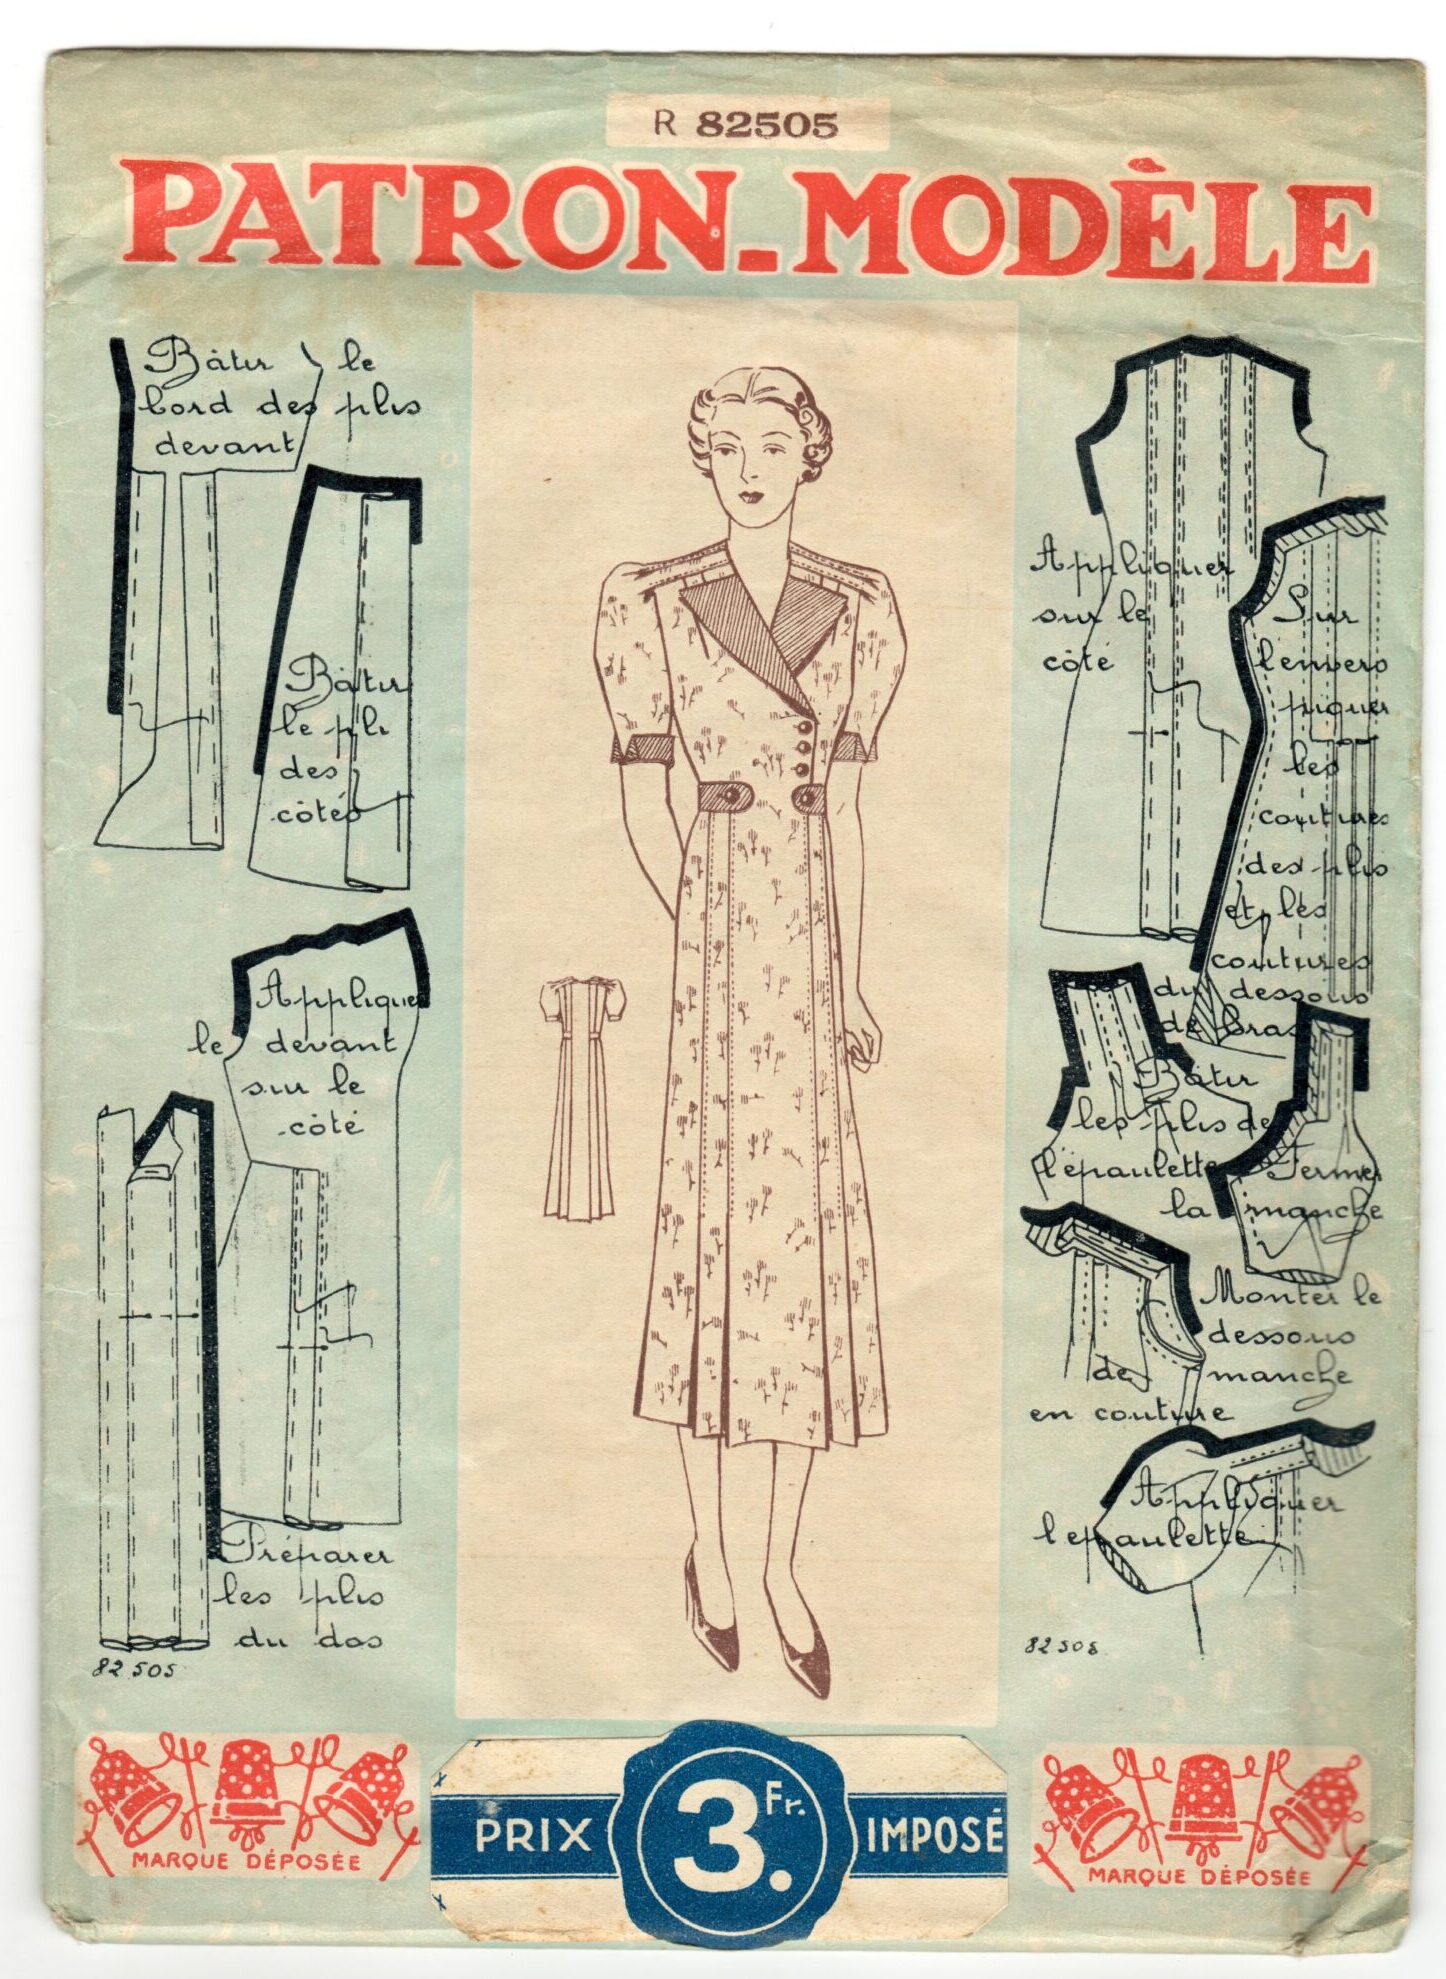 R 82505
PATRON-MODÈLE
Bâtir le
bord des plis
devant
Bâtir
le pli
des
côtés
Appliquer
le devant
sur le
côté
Préparer
les plis
du dos
82 505
Appliquer
sur le
côté
Sur
l'envers
piquer
les
coutures
des plis
et les
coutures
du dessous
de bras
Bâtir
les plis de
l'épaulette
Fermer
la manche
Monter le
dessous
de manche
en couture
Appliquer
l'epaulette
82 505
MARQUE DÉPOSÉE
PRIX 3. Fr. IMPOSÉ
MARQUE DÉPOSÉE